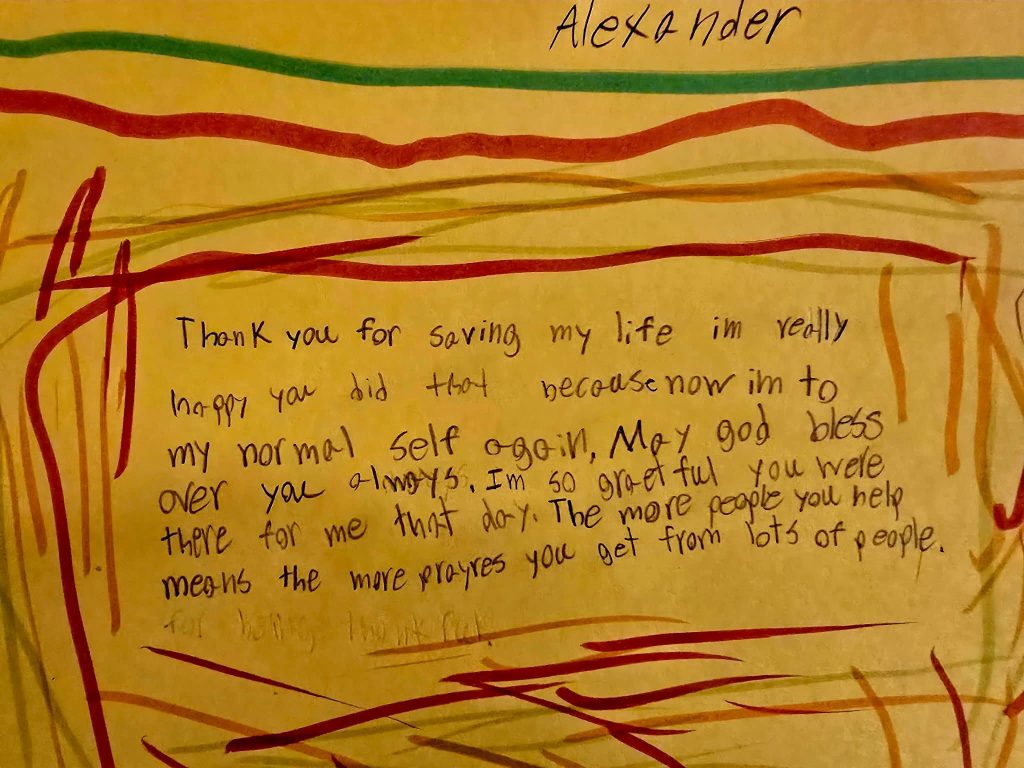 Alexander
Thank you for saving my life im really
happy you did that because now im to
my normal self again, May god bless
over you always. Im so graetful you were
there for me that day. The more people you help
means the more prayres you get from lots of people.
for being thankful.